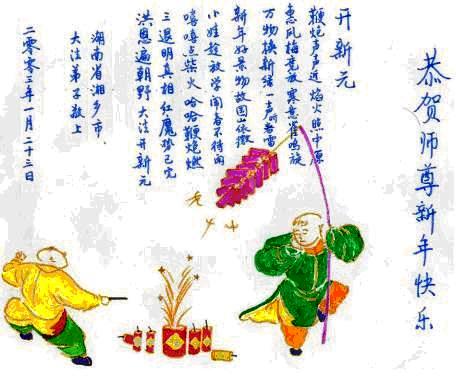 恭贺师尊新年快乐
开新元
鞭炮声声近 焰火照中原
惠风梅竞放 寒意
万物换新绿 一声听春雷
新年好景物 故园山依
小娃趁放学 闹春不待雨
嘻嘻点柴火 哈哈鞭炮燃
三退明真相 红魔 已完
洪恩遍朝野 大法开新元
湖南省湘乡市
大法弟子敬上
二〇〇三年一月二十三日